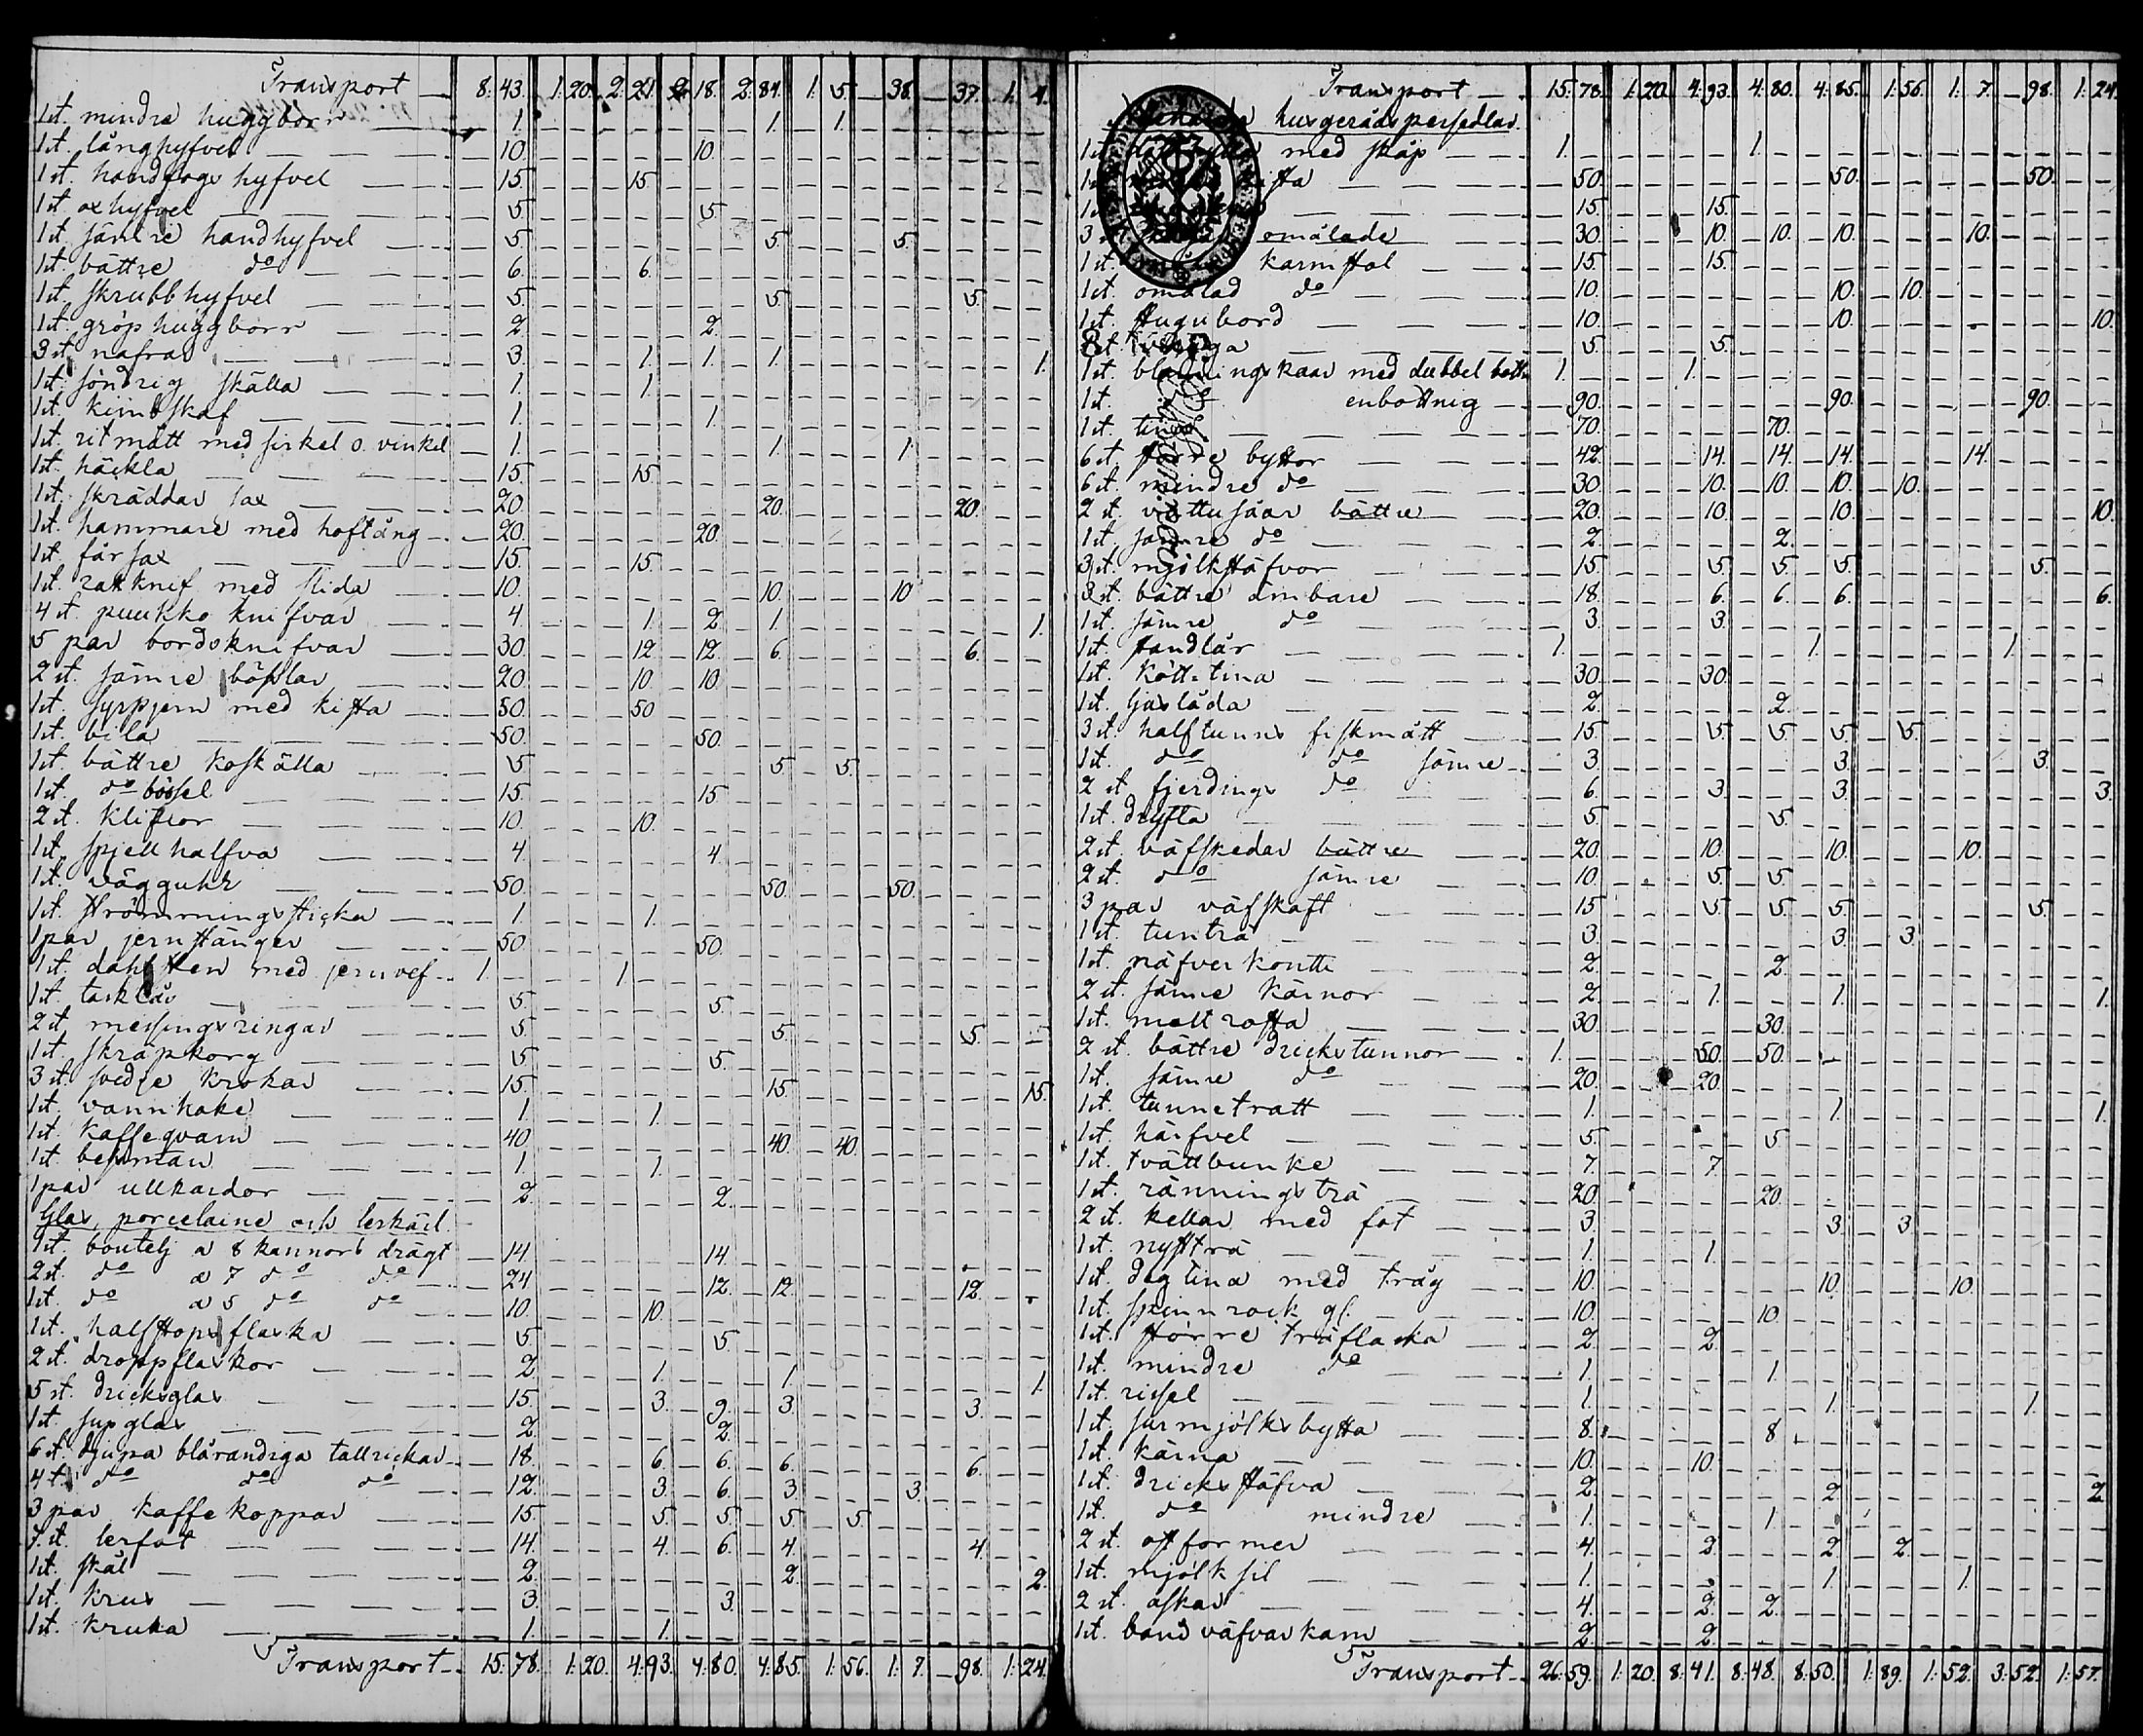 Transport — 8. 43. 1. 20. 2. 21. 2. 18. 2. 84. 1. 5. — 38. — 37. 1. 4.
1 st. mindre huggborr — 1. 1. 1.
1 st. långhyfvel — 10. 10.
1 st. handfogs hyfvel — 15. 15.
1 st. oxhyfvel — 5. 5.
1 st. sämre handhyfvel — 5. 5. 5.
1 st. bättre do — 6. 6.
1 st. skrubbhyfvel — 5. 5. 5.
1 st. gröphuggborr — 2. 2.
3 st. nafrar — 3. 1. 1. 1. 1.
1 st. söndrig skälla — 1. 1.
1 st. kimbskaf — 1. 1.
1 st. ritmått med sirkel o. vinkel — 1. 1. 1.
1 st. häckla — 15. 15.
1 st. skräddar sax — 20. 20. 20.
1 st. hammare med hoftång — 20. 20.
1 st. fårsax — 15. 15.
1 st. rakknif med slida — 10. 10. 10
4 st. puukko knifvar — 4. 1. 2. 1. 1.
5 par bordsknifvar — 30. 12. 12. 6. 6.
2 st. sämre bösslar — 20. 10. 10.
1 st. syrpjern med kista — 50. 50
1 st. bila — 50. 50.
1 st. bättre koskälla — 5. 5. 5.
1 st. do bössel — 15. 15
2 st. klifvor — 10. 10.
1 st. spjellhalfva — 4 4.
1 st. vägguhr — 50. 50. 50.
1 st. strömmingssticka — 1. 1.
1 par jernstänger — 50 50.
1 st. dahlsten med jernvef — 1. 1.
1 st. tasklås — 5. 5.
2 st. messingsringar — 5. 5. 5.
1 st. skrapkorg — 5 5.
3 st. svedje krokar — 15. 15. 15.
1 st. vannhake — 1. 1.
1 st. kaffeqvarn — 40. 40. 40.
1 st. bessman — 1. 1.
1 par ullkardor — 2. 2.
Glas, porcelaine och lerkärl.
1 st. boutelj a 8 kannors drägt — 14. 14.
2 st. do a 7 do do — 24 12. 12. 12.
1 st. do a 5 do do — 10. 10.
1 st. halfstops flaska — 5. 5.
2 st. droppflaskor — 2. 1. 1. 1.
5 st. dricksglas — 15. 3. 9. 3. 3.
1 st. supglas — 2. 2.
6 st. djupa blårandiga tallrickar — 18. 6. 6. 6. 6.
4 st. do do do — 12. 3. 6. 3. 3.
3 par kaffekoppar — 15. 5. 5. 5. 5.
7 st. lerfat — 14. 4. 6. 4. 4.
1 st. skål — 2. 2. 2.
1 st. krus — 3. 3.
1 st. kruka — 1. 1.
Transport — 15. 78. 1. 20. 4. 93. 4. 80. 4. 85. 1. 56. 1. 7. — 98. 1. 24.
Transport — 15. 78. 1. 20. 4. 93. 4. 80. 4. 85. 1. 56. 1. 7. — 98. 1. 24.
husgerådspersedlar.
1 st. med skåp — 1. 1.
50. 50. 50.
15. 15.
3 omålade — 30. 10. 10. 10. 10.
1 st. karmstol — 15. 15.
1 st. omålad do — 10. 10. 10.
1 st. stugubord — 10. 10. 10.
5. 5.
1 st. blandningskaar med dubbel botten 1. 1.
1 st. do enbottnig — 90. 90. 90.
1 st. tina — 70. 70.
6 st. större byttor — 42. 14. 14. 14. 14.
6 st. mindre do — 30. 10. 10. 10. 10.
2 st. vattusåar bättre — 20. 10. 10. 10.
1 st. sämre do — 2. 2.
3 st. mjölkstäfvor — 15. 5. 5. 5. 5.
3 st. bättre ämbare — 18. 6. 6. 6. 6.
1 st. sämre do — 3. 3.
1 st. standlår — 1. 1. 1.
1 st. kött-tina — 30. 30.
1 st. ljuslåda — 2. 2.
3 st. halftunns fiskmått — 15. 5. 5. 5. 5.
1 st. do do sämre — 3. 3. 3.
2 st. fjerdings do — 6. 3. 3. 3.
1 st. dryfla — 5 5.
2 st. väfskedar bättre — 20. 10. 10. 10.
2 st. do sämre — 10. 5. 5.
3 par väfskaft — 15 5. 5. 5. 5.
1 st. tunträ — 3. 3. 3
1 st. näfverkontti — 2. 2
2 st. sämre kärnor — 2. 1. 1. 1.
1 st. maltrossa — 30. 30.
2 st. bättre drickstunnor — 1. 50. 50.
1 st. sämre do — 20. 20.
1 st. tunnetratt — 1. 1. 1.
1 st. härfvel — 5. 5
1 st. tvättbunke — 7. 7.
1 st. ränningsträ — 20. 20.
2 st. kellar med fot — 3. 3. 3
1 st. nystträ — 1. 1.
1 st. degtina med tråg — 10. 10. 10.
1 st. spinnrock gl. — 10. 10.
1 st. större träflaska — 2. 2.
1 st. mindre do — 1. 1.
1 st. rissel — 1. 1. 1.
1 st. surmjölksbytta — 8. 8
1 st. kärna — 10. 10.
1 st. dricksstäfva — 2. 2. 2.
1 st. do mindre — 1. 1.
2 st. ostformer — 4. 2. 2. 2.
1 st. mjölksil — 1. 1. 1.
2 st. askar — 4. 2. 2.
1 st. bandväfvarkam — 2. 2.
Transport — 26. 59. 1. 20. 8. 41. 8. 48. 8. 50. 1. 89. 1. 52. 3. 52. 1. 57.